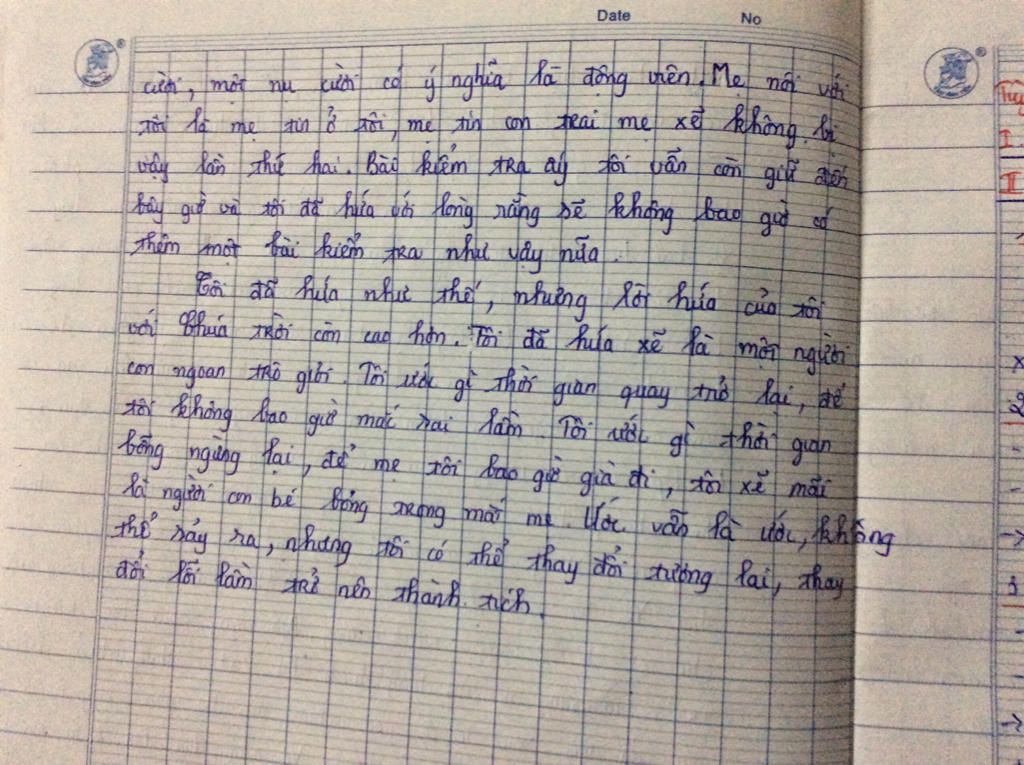 Date No
cười, một nụ cười có ý nghĩa là động viên. Mẹ nói với
tôi là mẹ tin ở tôi, mẹ tin con trai mẹ xẽ không bị
vậy lần thứ hai. Bài kiểm tra ấy tôi vẫn còn giữ đến
bây giờ và tôi đã hứa với lòng rằng sẽ không bao giờ có
thêm một bài kiểm tra như vậy nữa.
Tôi đã hứa như thế, nhưng lời hứa của tôi
với Chúa trời còn cao hơn. Tôi đã hứa xẽ là một người
con ngoan trò giỏi. Tôi ước gì thời gian quay trở lại, để
tôi không bao giờ mắc sai lầm. Tôi ước gì thời gian
bỗng ngừng lại, để mẹ tôi bao giờ già đi, tôi xẽ mãi
là người con bé bỏng trong mắt mẹ. Ước vẫn là ước, không
thể sảy ra, nhưng tôi có thể thay đổi tương lai, thay
đổi lỗi lầm trở nên thành tích.
I.
II